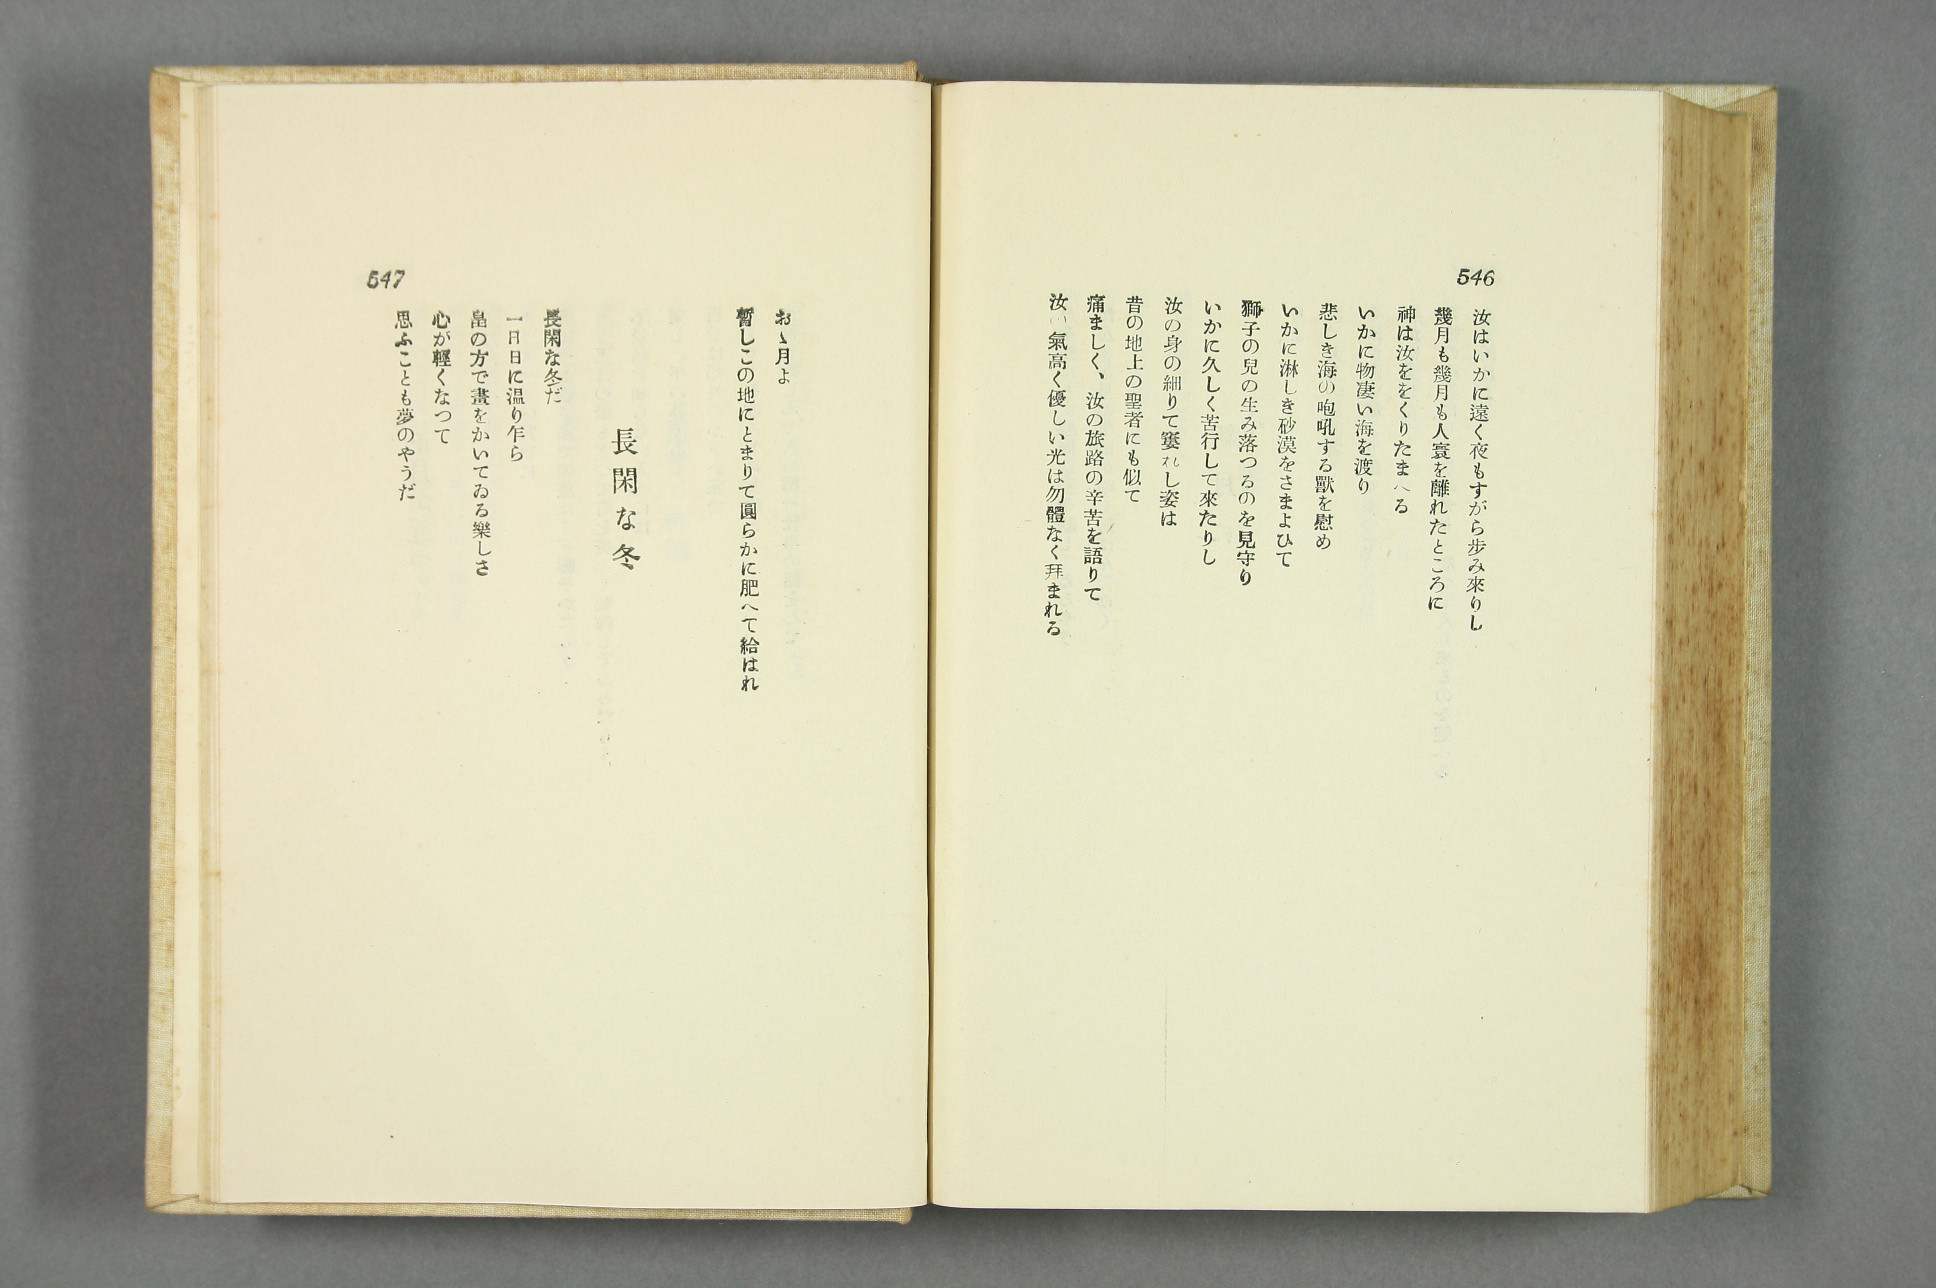 546
汝はいかに遠く夜もすがら歩み來りし
幾月も幾月も人寰を離れたところに
神は汝ををくりたまへる
いかに物凄い海を渡り
悲しき海の咆吼する獸を慰め
いかに淋しき砂漠をさまよひて
獅子の兒の生み落つるのを見守り
いかに久しく苦行して來たりし
汝の身の細りて窶れし姿は
昔の地上の聖者にも似て
痛ましく、汝の旅路の辛苦を語りて
汝い氣高く優しい光は勿體なく拜まれる
おゝ月よ
暫しこの地にとまりて圓らかに肥へて給はれ
長閑な冬
長閑な冬だ
一日日に温り乍ら
畠の方で畫をかいてゐる樂しさ
心が輕くなつて
思ふことも夢のやうだ
547